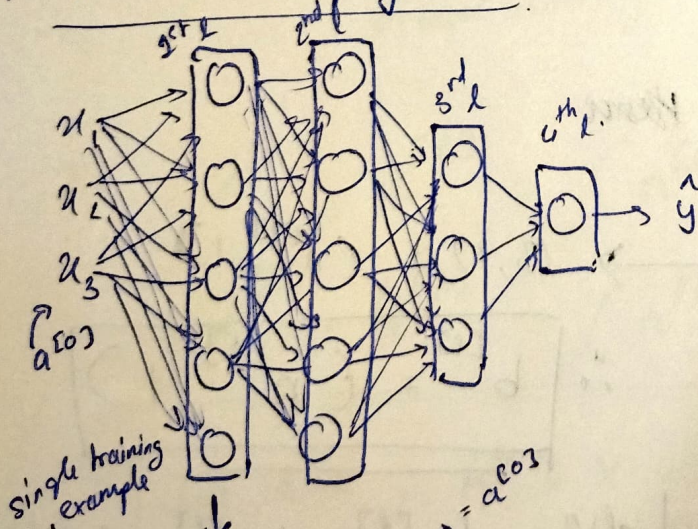 1st l
2nd l
3rd l
4th l
x1
x2
x3
ŷ
a[0]
single training
example
= a[0]